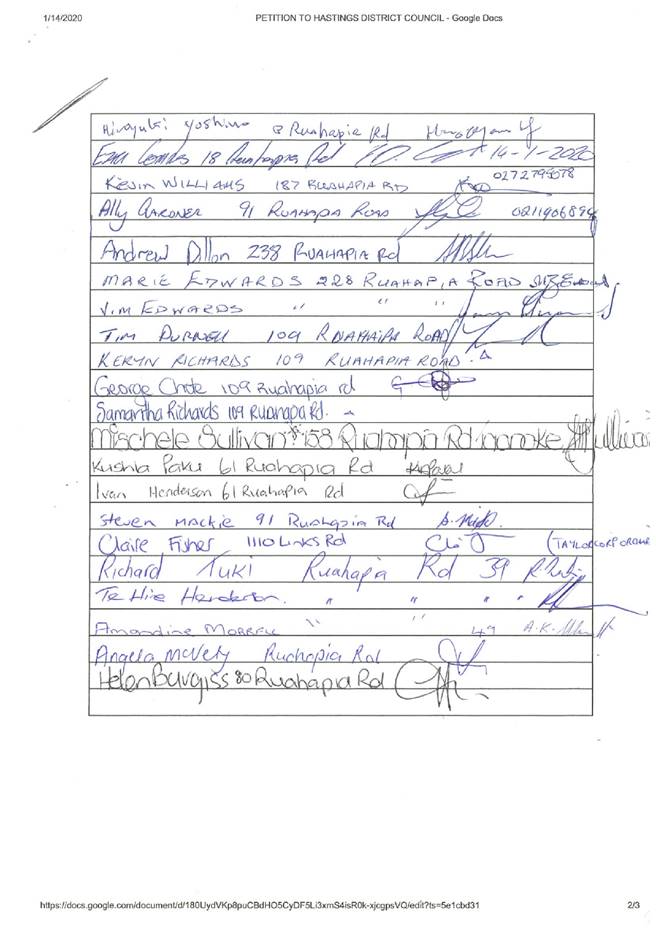 1/14/2020 PETITION TO HASTINGS DISTRICT COUNCIL - Google Docs
Hiroyuki Yoshino Ruahapia Rd
18 Ruahapia Rd 14-1-2020
KEVIN WILLIAMS 187 RUAHAPIA RD 0272795078
Ally GARDNER 91 RUAHAPIA ROAD
Andrew Dillon 238 RUAHAPIA Rd
MARIE EDWARDS 228 RUAHAPIA ROAD
JIM EDWARDS " " "
TIM 109 RUAHAPIA ROAD
KERYN RICHARDS 109 RUAHAPIA ROAD.
George Chote 109 Ruahapia rd
Samantha Richards 109 Ruahapia Rd.
Mischele Sullivan 158 Ruahapia Rd
Kushla Paku 61 Ruahapia Rd
Ivan Henderson 61 Ruahapia Rd
Steven Mackie 91 Ruahapia Rd
Claire Fisher 1110 Links Rd
Richard Tuki Ruahapia Rd 39
Te Hire Henderson. " " " "
Amandine " " 49
Angela McVety Ruahapia Rd
Helen Burgiss 80 Ruahapia Rd
https://docs.google.com/document/d/180UydVKp8puCBdHO5CyDF5Li3xmS4isR0k-xjcgpsVQ/edit?ts=5e1cbd31 2/3